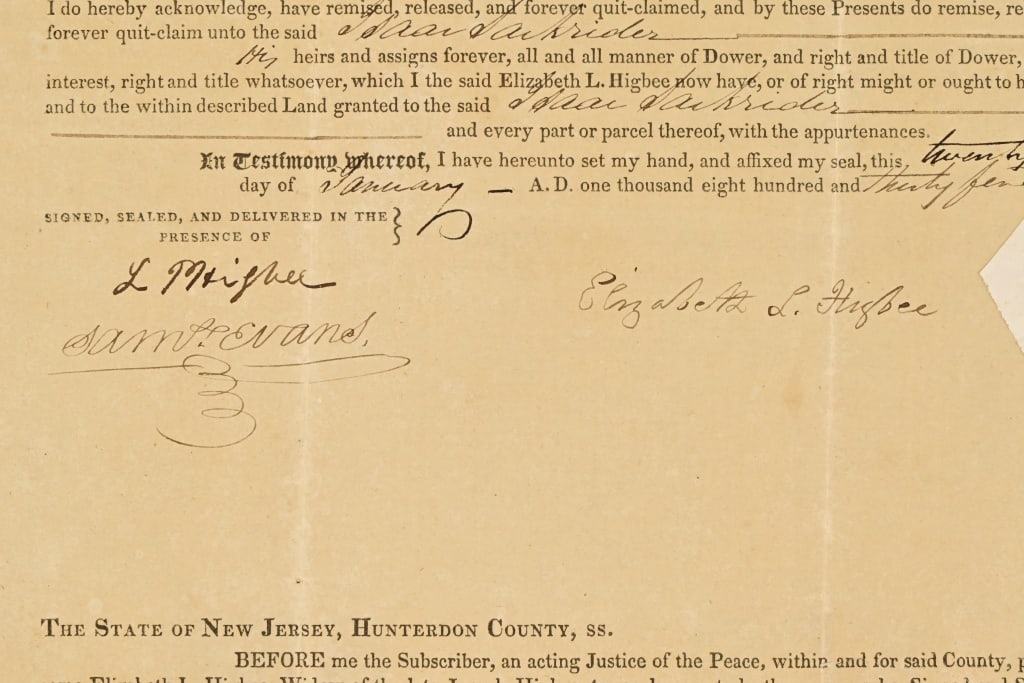 I do hereby acknowledge, have remised, released, and forever quit-claimed, and by these Presents do remise, re
forever quit-claim unto the said Isaac Sarkrider
His heirs and assigns forever, all and all manner of Dower, and right and title of Dower,
interest, right and title whatsoever, which I the said Elizabeth L. Higbee now have, or of right might or ought to h
and to the within described Land granted to the said Isaac Sarkrider
and every part or parcel thereof, with the appurtenances.
In Testimony whereof, I have hereunto set my hand, and affixed my seal, this twenty
day of January A. D. one thousand eight hundred and thirty
SIGNED, SEALED, AND DELIVERED IN THE
PRESENCE OF
Higbee
Elizabeth L. Higbee
Saml. Evans.
THE STATE OF NEW JERSEY, HUNTERDON COUNTY, SS.
BEFORE me the Subscriber, an acting Justice of the Peace, within and for said County, p